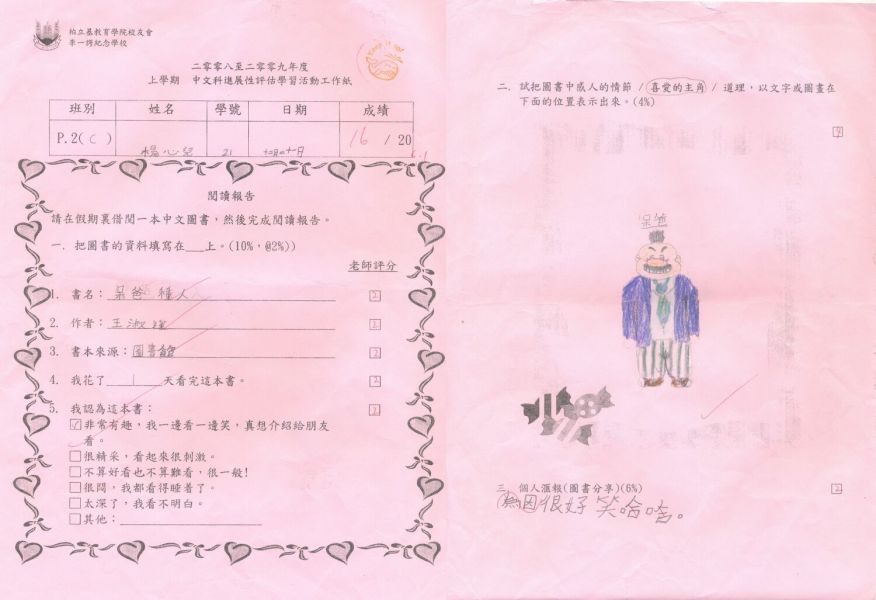 柏立基教育學院校友會
李一諤紀念學校
Keep it up!
二零零八至二零零九年度
上學期 中文科進展性評估學習活動工作紙
班別 姓名 學號 日期 成績
P.2( C ) 楊心兒 21 十二月二十日 16 / 20
閱讀報告
請在假期裏借閱一本中文圖書,然後完成閱讀報告。
一. 把圖書的資料填寫在___上。(10%,@2%))
老師評分
1. 書名:呆爸 種人 2
2. 作者:王淑 2
3. 書本來源:圖書館 2
4. 我花了 1 天看完這本書。 2
5. 我認為這本書: 2
☑非常有趣,我一邊看一邊笑,真想介紹給朋友
看。
□很精采,看起來很刺激。
□不算好看也不算難看,很一般!
□很悶,我都看得睡着了。
□太深了,我看不明白。
□其他:
二. 試把圖書中感人的情節 / 喜愛的主角 / 道理,以文字或圖畫在
下面的位置表示出來。(4%)
呆爸
三. 個人滙報(圖書分享)(6%) 2
因很好笑哈哈。